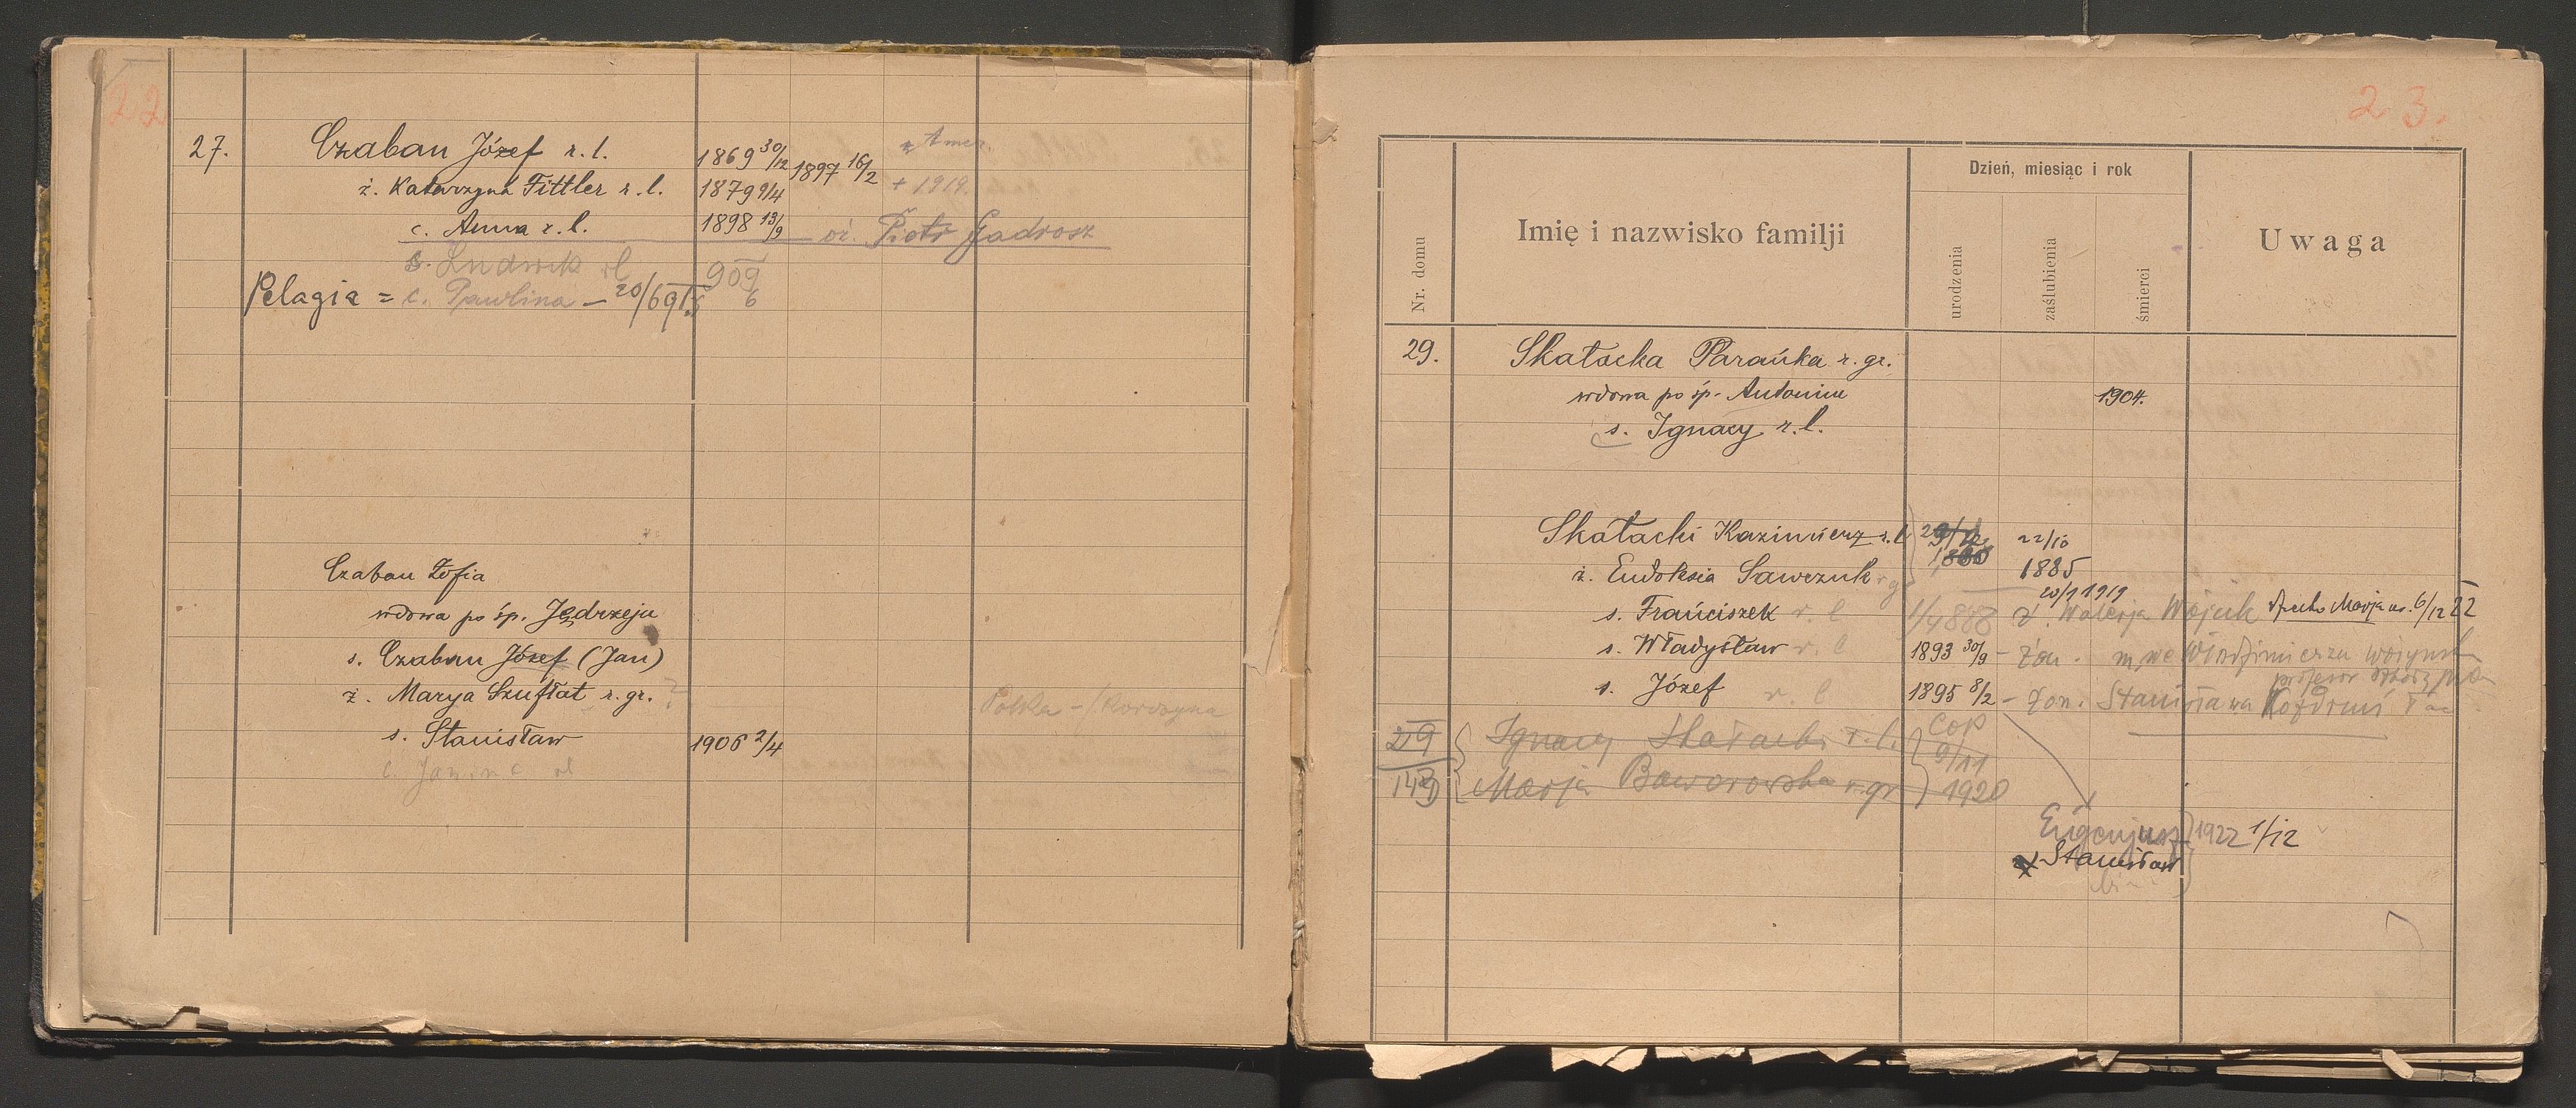 22
27. Czaban Józef r. l. 1869 30/12 1897 16/2 Amer.
ż. Katarzyna Tittler r. l. 1879 9/4 + 1919.
c. Anna r. l. 1898 13/9 Piotr Gadrosz
s. Ludwik rl 909
Pelagia = c. Pawlina — 20/6 91 6
Czaban Zofia
wdowa po śp. Jędrzeju
s. Czaban Józef (Jan)
ż. Marya Szufłat r. gr. ?
Polska - Korczyna
s. Stanisław 1906 2/4
c. Janina rl
23.
Nr. domu
Imię i nazwisko familji
Dzień, miesiąc i rok
urodzenia
zaślubienia
śmierci
Uwaga
29. Skałacka Parańka r. gr.
wdowa po śp. Antonim 1904.
s. Ignacy r. l.
Skałacki Kazimierz r. l. 22/10
ż. Eudoksia Sawczuk r gr 1885
20/1 1919
s. Franciszek r. l 1/4 888 ż. Walerja Wojuk Marja ur. 6/12 22
s. Władysław r. l 1893 30/9 - żon. we Włodzimierzu
profesor
s. Józef r. l 1895 8/2 - żon. Stanisława
29 Ignacy Skałacki r. l. cop
9/11
143 Marja Baworowska r. gr 1920
Eugenjusz 1922 1/12
Stanisław